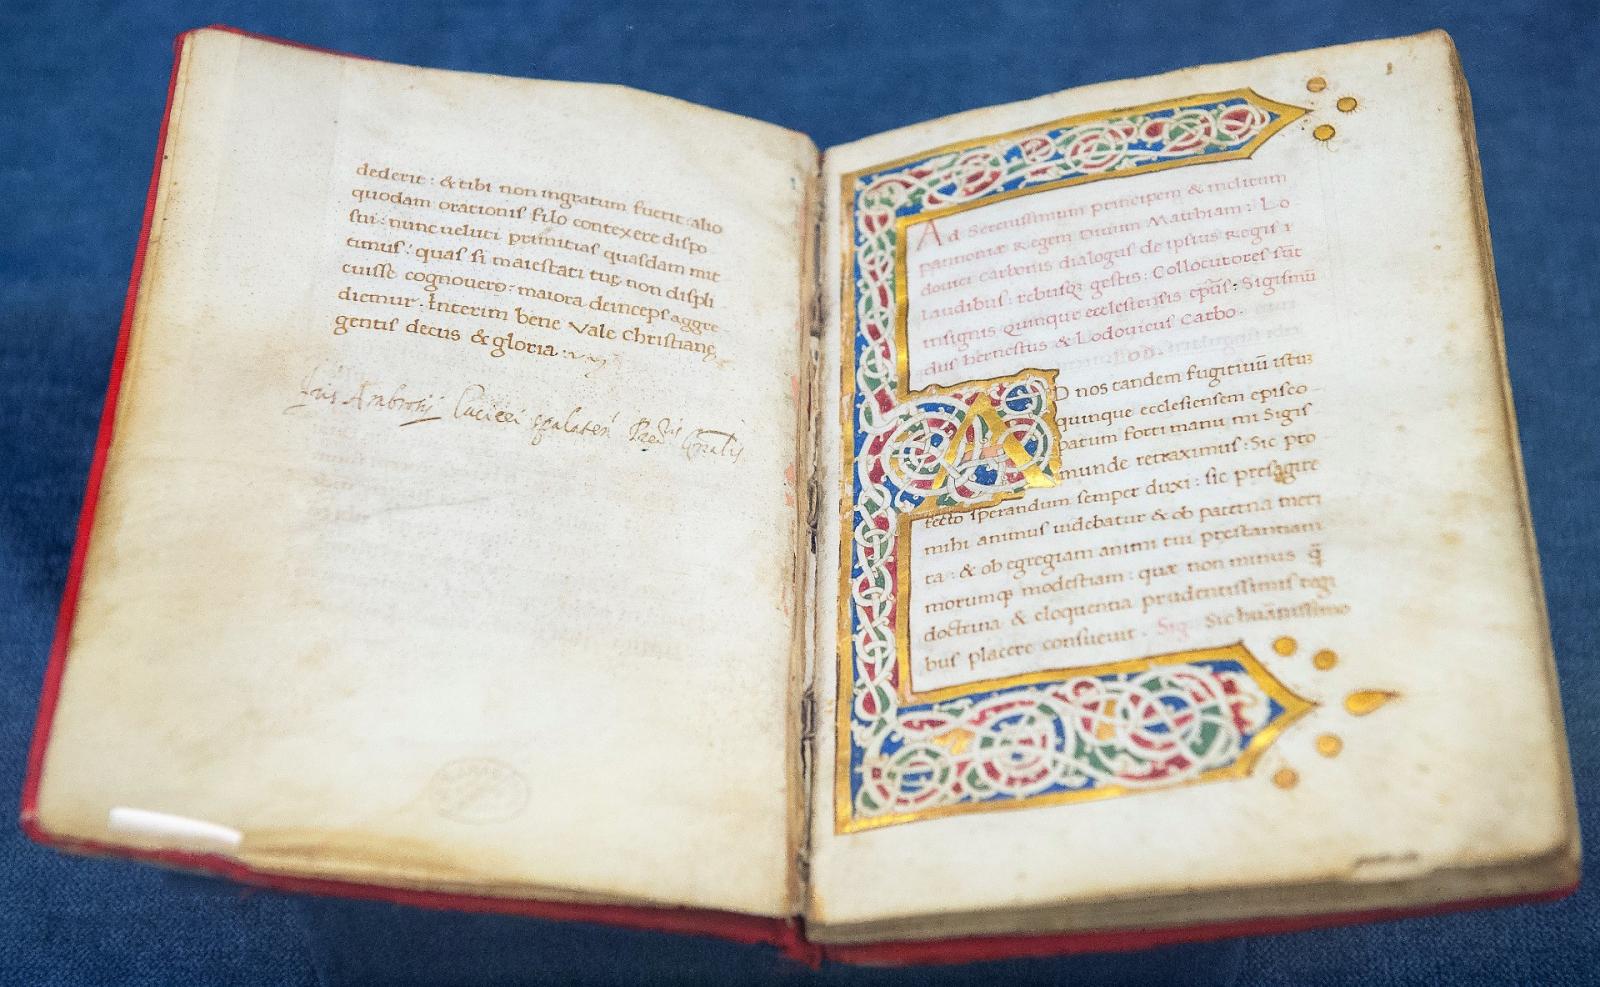 dederit : & tibi non ingratum fuerit: alio
quodam orationis filo contexere dispo
sui: nunc ueluti primitias quasdam mit
timus: quas si maiestati tuę non displi
cuisse cognouero: maiora deinceps aggre
diemur. Interim bene Vale Christianę
gentis decus & gloria:
Ambronij spalaten
Ad Serenissimum principem & inclitum
pannoniæ Regem Diuum Mathiam: Lo
douici Carbonis dialogus de ipsius Regis
laudibus: rebusq; gestis: Collocutores sūt
insignis quinque ecclesiensis epūs: Sigismū
dus hernestus & Lodouicus Carbo.
AD nos tandem fugitiuū istū
quinque ecclesiensem episco
patum forti manu mi Sigis
munde retraximus: Sic pro
fecto sperandum semper duxi: sic presagire
mihi animus uidebatur & ob paterna meri
ta: & ob egregiam animi tui prestantiam
morumq; modestiam: quæ non minus q̄
doctrina & eloquentia prudentissimis regi
bus placere consueuit. Sig. Sic humanissimo